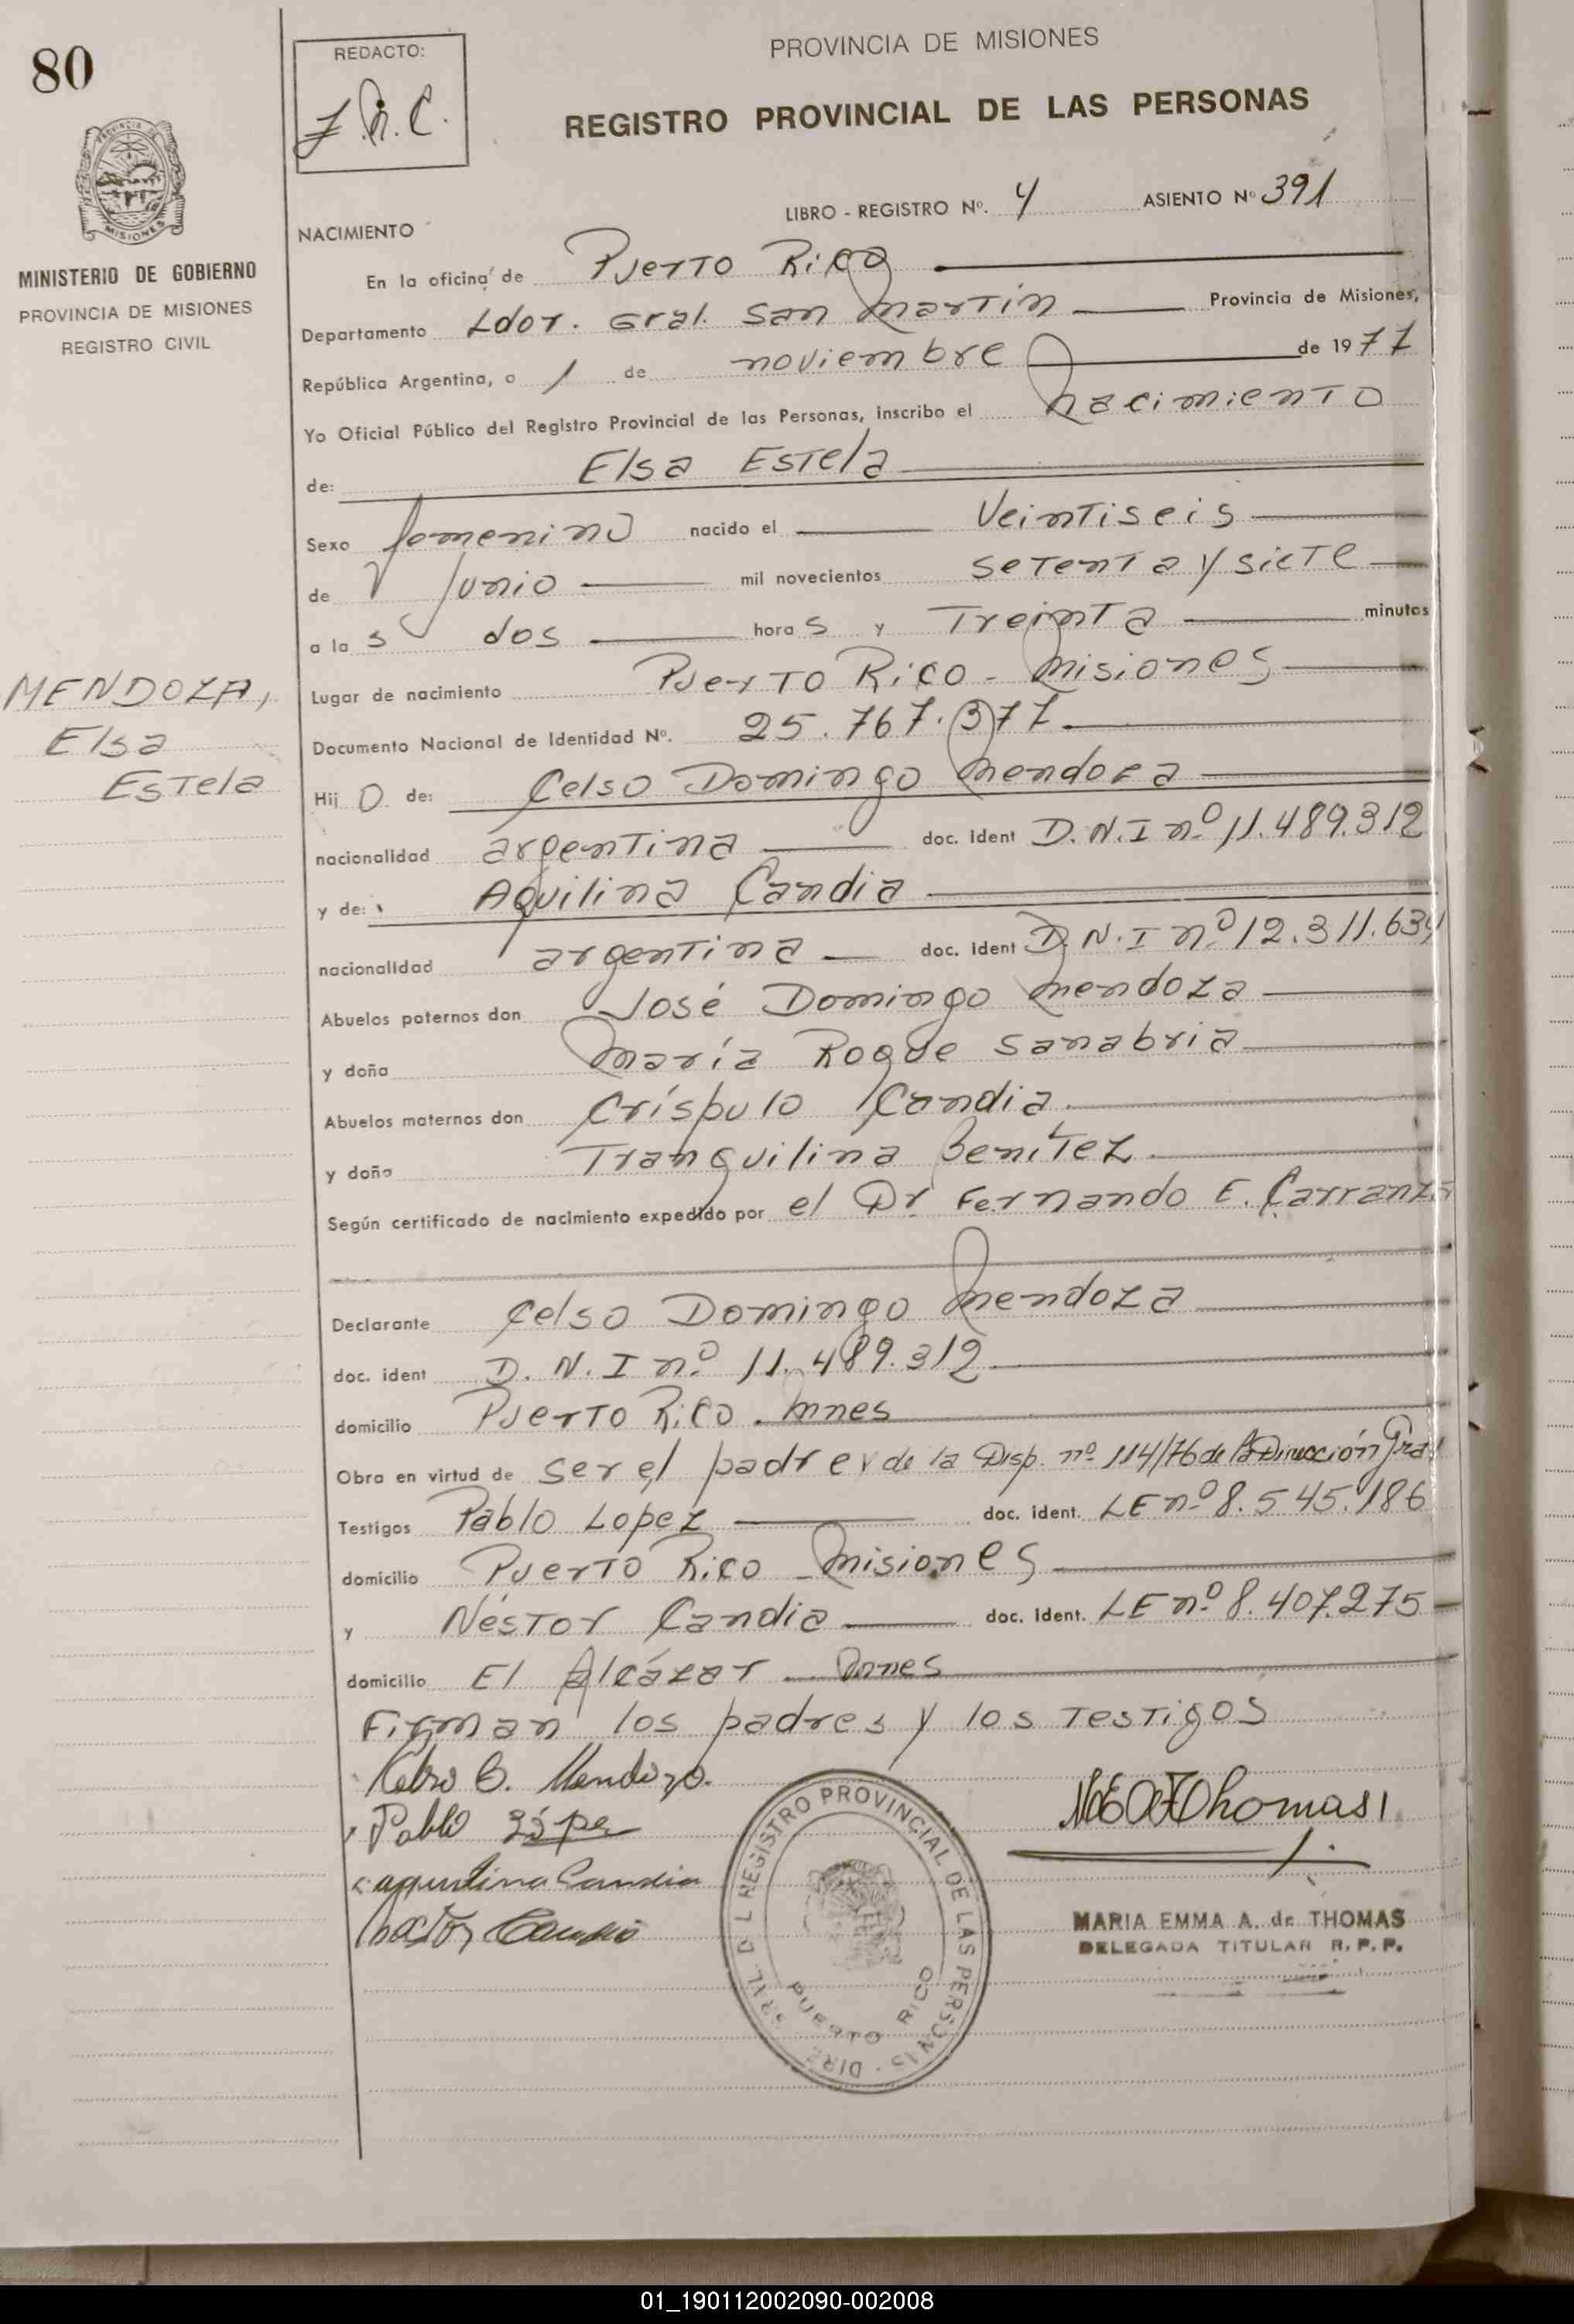 80
REDACTO:
PROVINCIA DE MISIONES
REGISTRO PROVINCIAL DE LAS PERSONAS
LIBRO - REGISTRO Nº. 4 ASIENTO Nº 391
MISIONES
MINISTERIO DE GOBIERNO
PROVINCIA DE MISIONES
REGISTRO CIVIL
NACIMIENTO
En la oficina de Puerto Rico
Departamento Ldor. Gral. San Martín Provincia de Misiones,
República Argentina, a 1 de noviembre de 1977
Yo Oficial Público del Registro Provincial de las Personas, inscribo el nacimiento
de: Elsa Estela
Sexo femenino nacido el Veintiseis
de Junio mil novecientos setenta y siete
a las dos horas y Treinta minutos
Lugar de nacimiento Puerto Rico - Misiones
MENDOZA,
Elsa
Estela
Documento Nacional de Identidad Nº. 25.767.377
Hij O de: Celso Domingo Mendoza
nacionalidad argentina doc. ident D.N.I nº 11.489.312
y de: Aquilina Candia
nacionalidad argentina doc. ident D.N.I nº 12.311.634
Abuelos paternos don José Domingo Mendoza
y doña María Roque Sanabria
Abuelos maternos don Críspulo Candia
y doña Tranquilina Benítez
Según certificado de nacimiento expedido por el Dr Fernando E. Carranza
Declarante Celso Domingo Mendoza
doc. ident D.N.I nº 11.489.312
domicilio Puerto Rico - Mnes
Obra en virtud de ser el padre y de la Disp. nº 114/76 de la Dirección Gral
Testigos Pablo Lopez doc. ident. LE nº 8.545.186
domicilio Puerto Rico - Misiones
y Néstor Candia doc. ident. LE nº 8.407.275
domicilio El Alcázar - Mnes
Firman los padres y los Testigos
Celso D. Mendoza
Pablo López
aquilina Candia
Nestor Candia
REGISTRO PROVINCIAL DE LAS PERSONAS
PUERTO RICO
MARIA EMMA A. de THOMAS
DELEGADA TITULAR R.P.P.
01_190112002090-002008